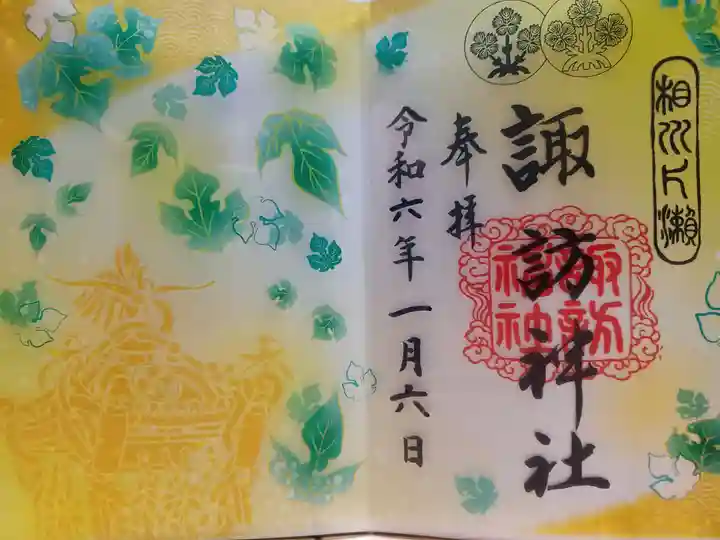 相州片瀬
奉拝
諏訪神社
諏訪神社
令和六年一月六日